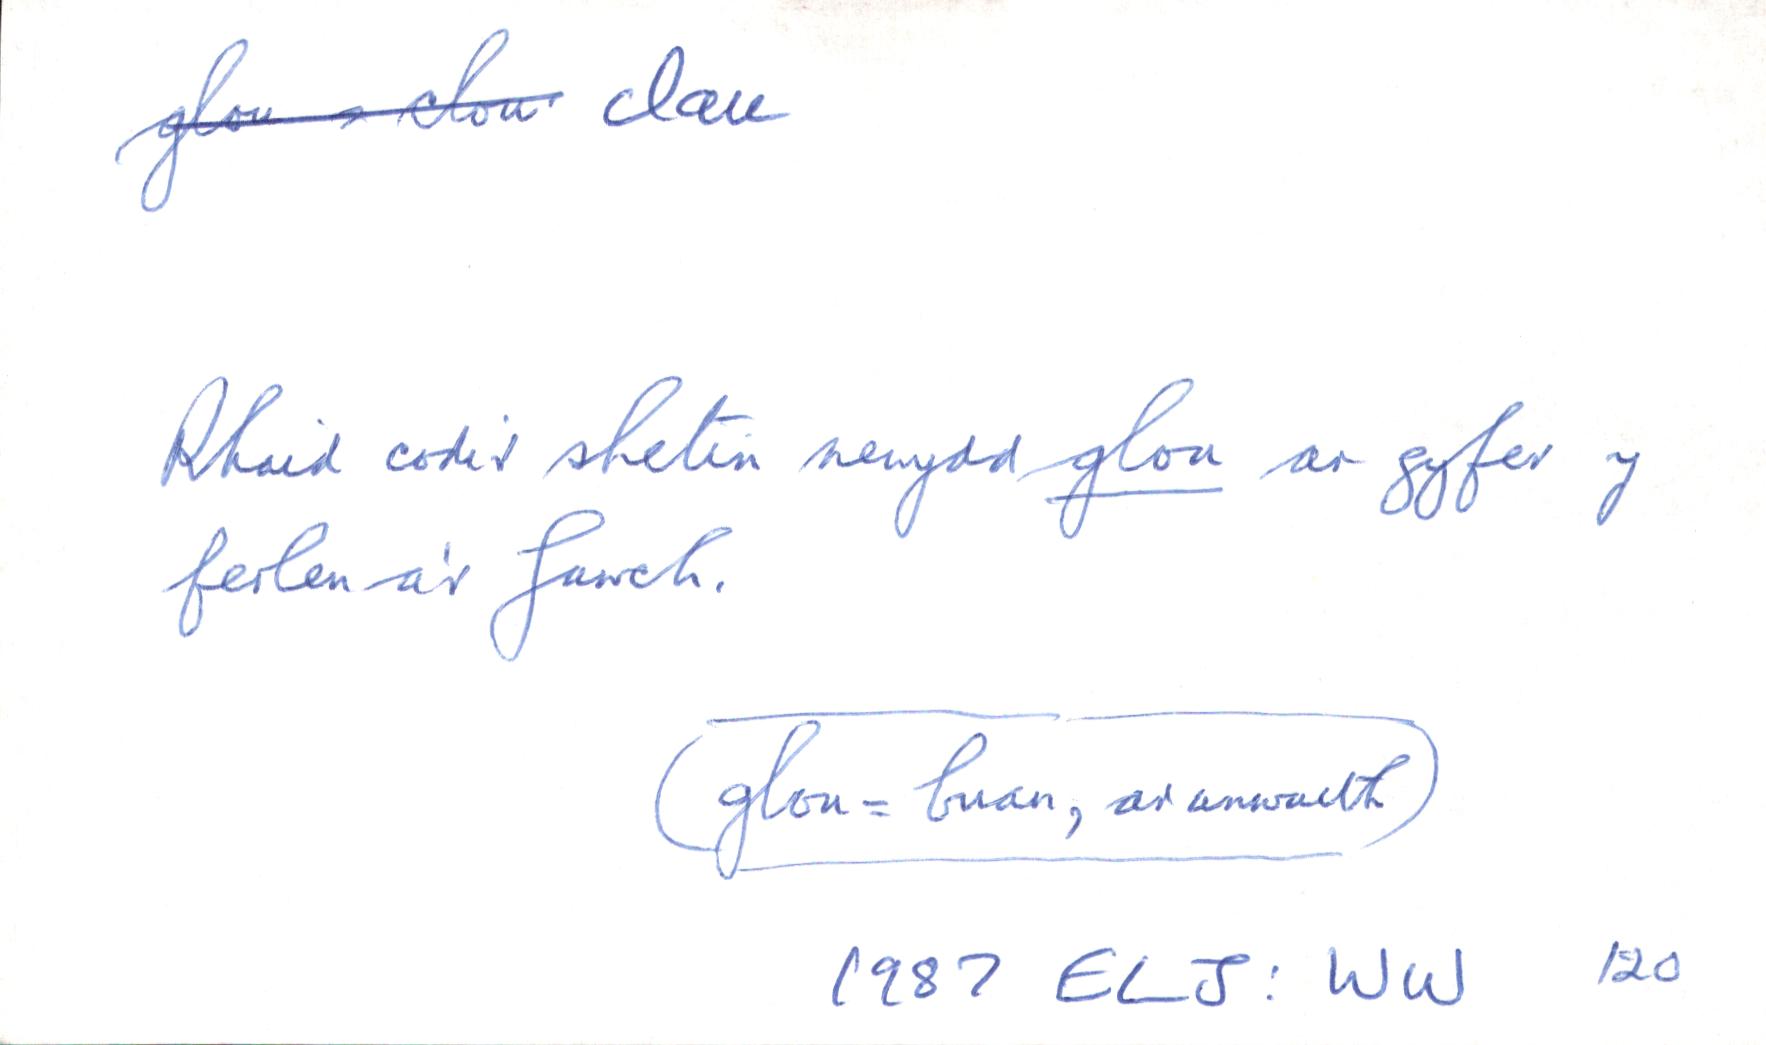 ~~glou > clou~~ clau
Rhaid codi'r shetin newydd glou ar gyfer y
ferlen a'r fuwch.
(glou = buan, ar unwaith)
1987 ELJ: WW 120